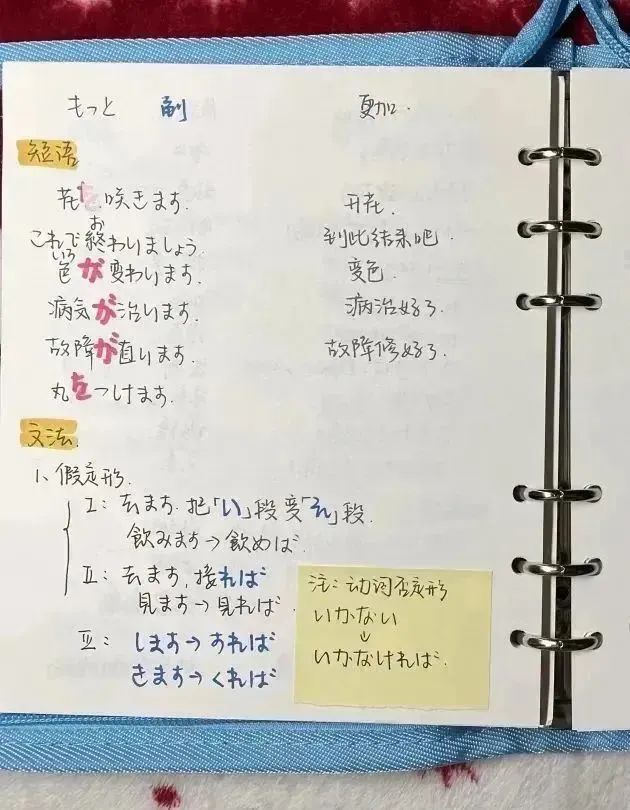 もっと 副 更加.
短语
花を咲きます. 开花.
お
これで終わりましょう. 到此结束吧.
いろ
色が変わります. 变色.
病気が治ります. 病治好了
故障が直ります. 故障修好了.
丸をつけます.
文法.
1、假定形.
Ⅰ: 去ます. 把「い」段变「え」段.
飲みます→飲めば.
Ⅱ: 去ます, 接れば
見ます→見れば.
Ⅲ: します→すれば
きます→くれば
注: 动词否定形
いかない
↓
いかなければ.